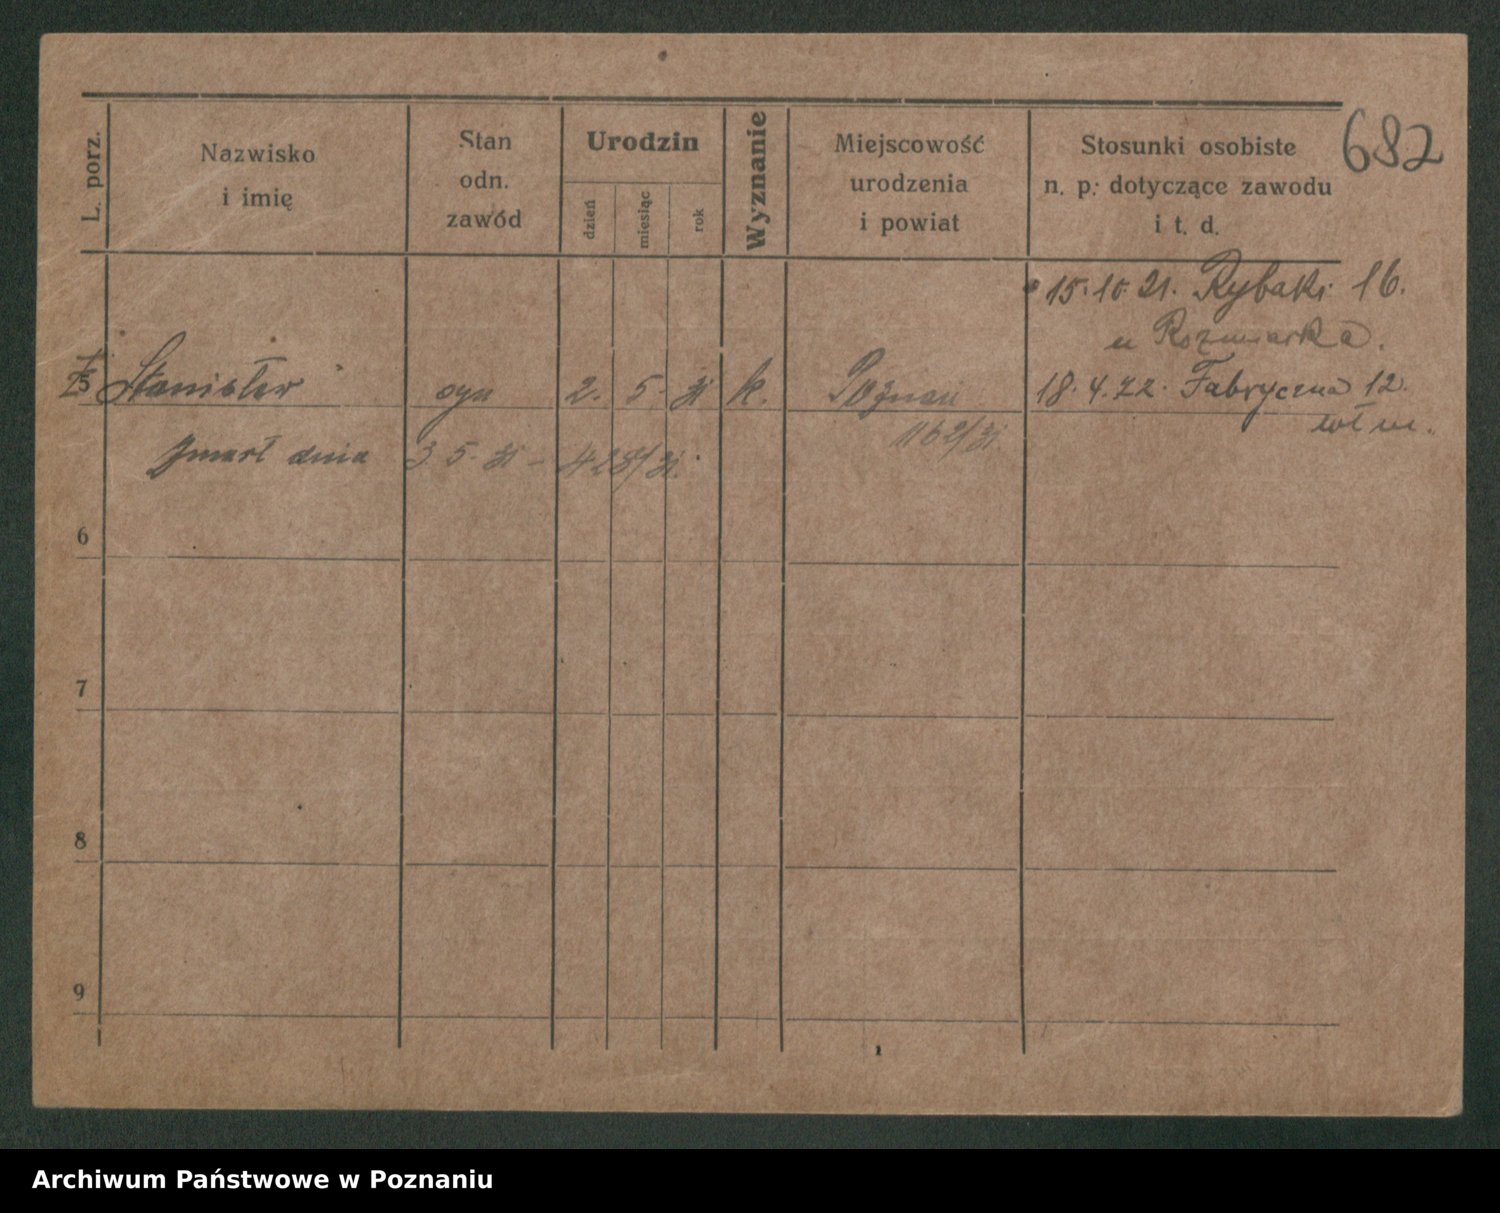 682
L. porz.
Nazwisko
i imię
Stan
odn.
zawód
Urodzin
dzień
miesiąc
rok
Wyznanie
Miejscowość
urodzenia
i powiat
Stosunki osobiste
n. p. dotyczące zawodu
i t. d.
15.10.21. Rybaki 16.
u Rozmiarka.
5 Stanisław syn 2. 5. 31 k. Poznań 18.4.22. Fabryczna 12.
1162/31.
Zmarł dnia 3.5.31 – 428/31.
6
7
8
9
Archiwum Państwowe w Poznaniu